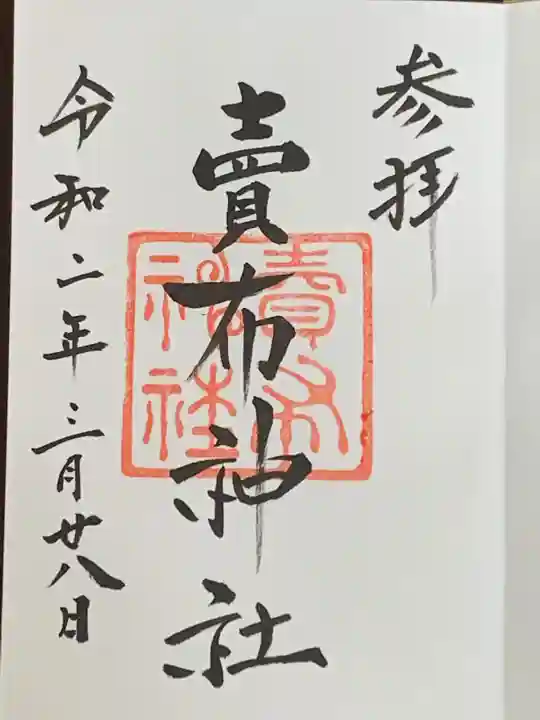 参拝
賣布神社
賣布神社
令和二年三月廿八日